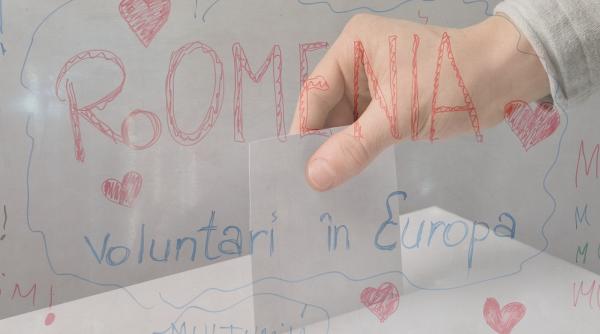 ROMENIA
voluntari în Europa